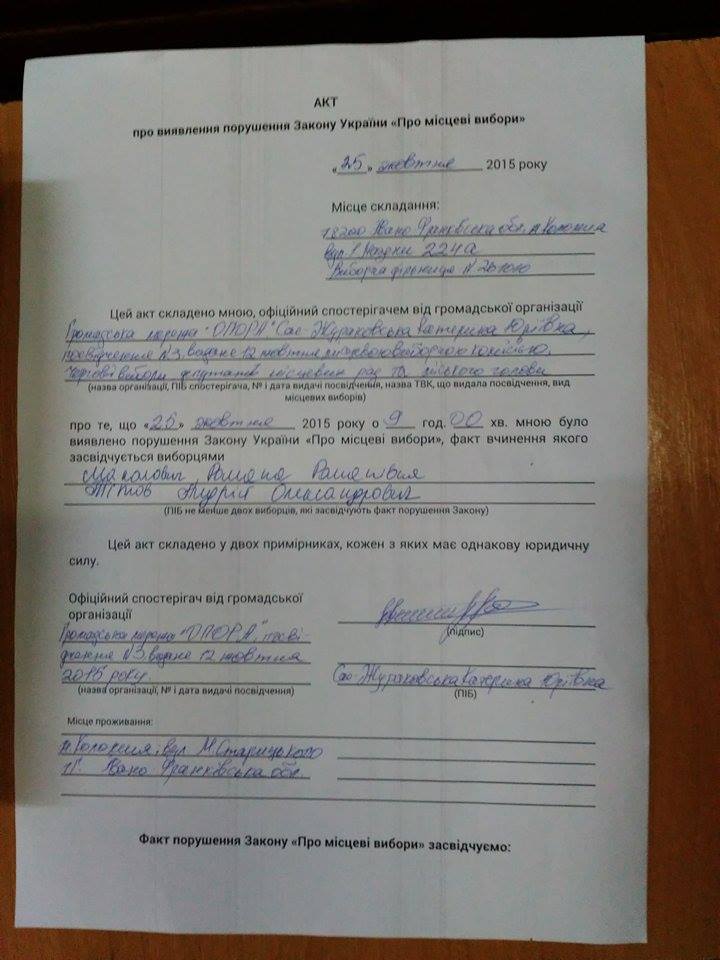 АКТ
про виявлення порушення Закону України «Про місцеві вибори»
«25» жовтня 2015 року
Місце складання:
78200 Івано Франківська обл. м Коломия
вул. І. Мазепи 224а
Виборча дільниця №
Цей акт складено мною, офіційний спостерігачем від громадської організації
Громадська мережа "ОПОРА", Сас-Жураковська Катерина Юріївна,
посвідчення №3, видане 12 жовтня міською виборчою комісією,
Чергові вибори депутатів місцевих рад та міського голови
(назва організації, ПІБ спостерігача, № і дата видачі посвідчення, назва ТВК, що видала посвідчення, вид
місцевих виборів)
про те, що «25» жовтня 2015 року о 9 год. 00 хв. мною було
виявлено порушення Закону України «Про місцеві вибори», факт вчинення якого
засвідчується виборцями
Романа Романівна
Тітов Андрій Олександрович
(ПІБ не менше двох виборців, які засвідчують факт порушення Закону)
Цей акт складено у двох примірниках, кожен з яких має однакову юридичну
силу.
Офіційний спостерігач від громадської
організації
(підпис)
Громадська мережа "ОПОРА", посві-
дчення №3 видане 12 жовтня
2015 року
Сас-Жураковська Катерина Юріївна
(назва організації, № і дата видачі посвідчення)
(ПІБ)
Місце проживання:
м Коломия, вул М. Старицького
Івано Франківська обл.
Факт порушення Закону «Про місцеві вибори» засвідчуємо: